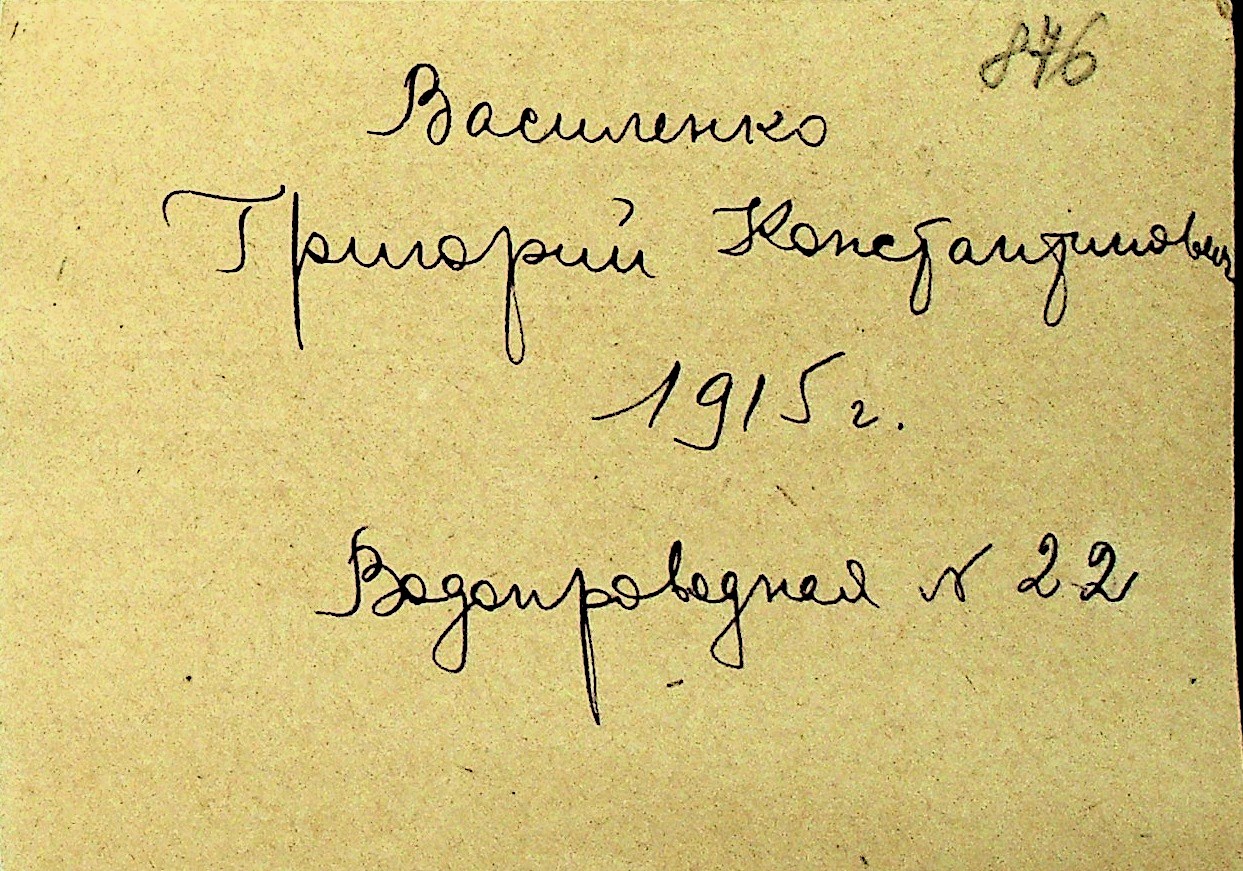 876
Василенко
Григорий Константинович
1915 г.
Водопроводная № 22